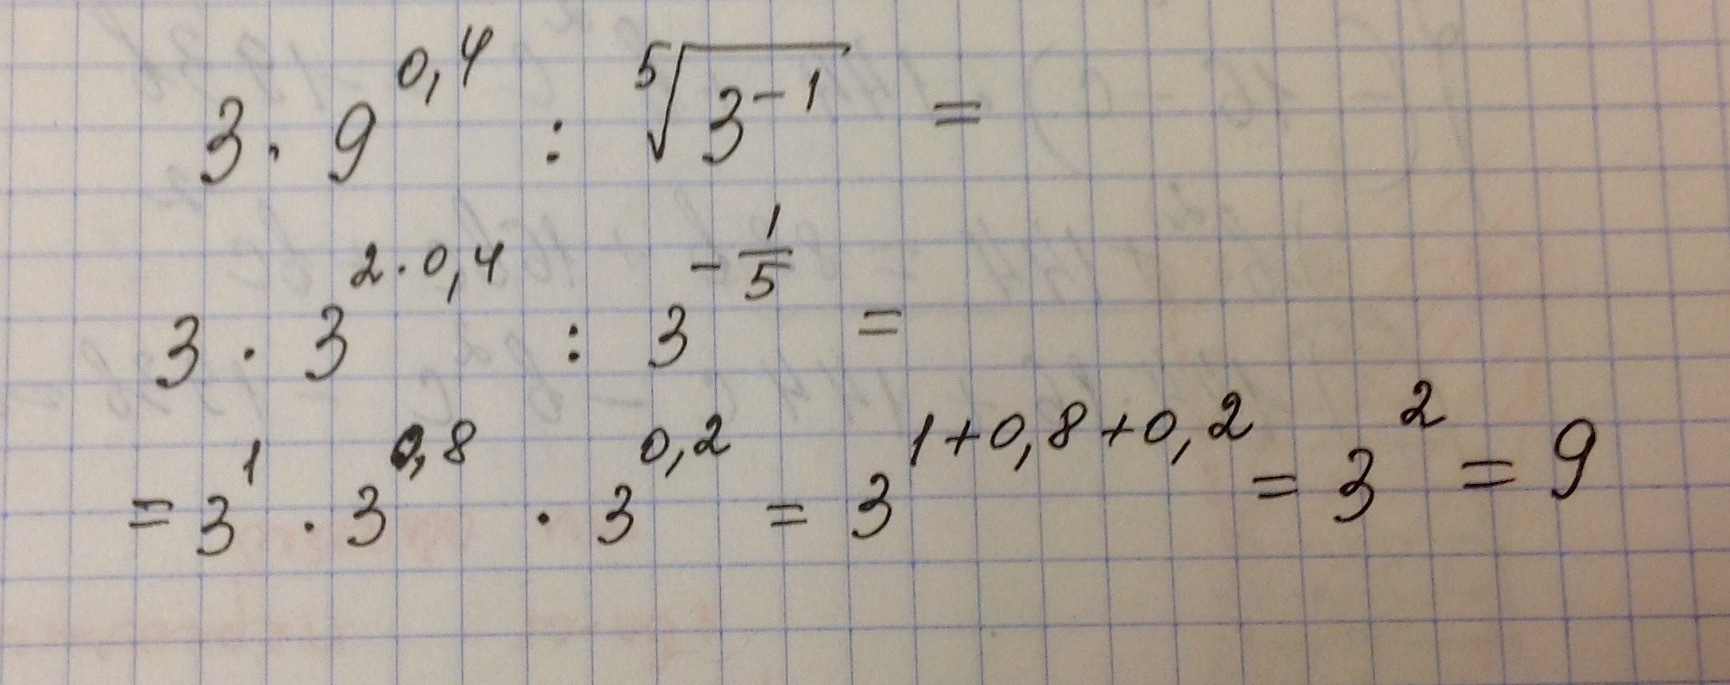 3 · 9^{0,4} : \sqrt[5]{3^{-1}} =
3 · 3^{2·0,4} : 3^{-\frac{1}{5}} =
= 3^1 · 3^{0,8} · 3^{0,2} = 3^{1+0,8+0,2} = 3^2 = 9